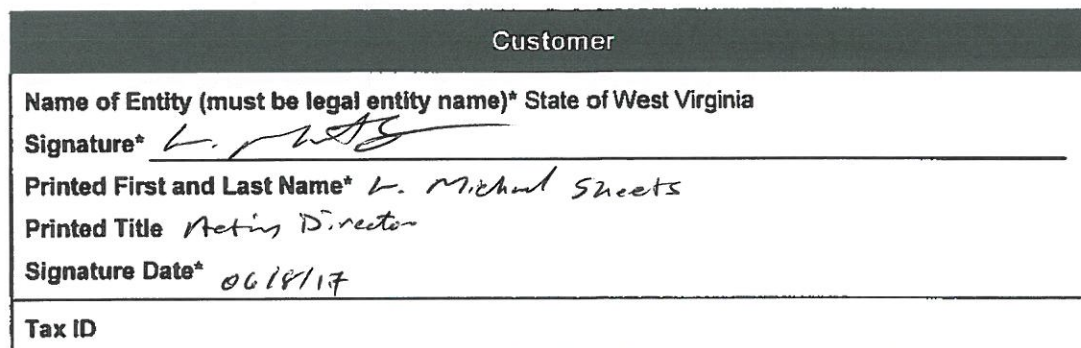 Customer
Name of Entity (must be legal entity name)* State of West Virginia
Signature*
Printed First and Last Name* L. Michael Sheets
Printed Title Acting Director
Signature Date* 06/8/17
Tax ID